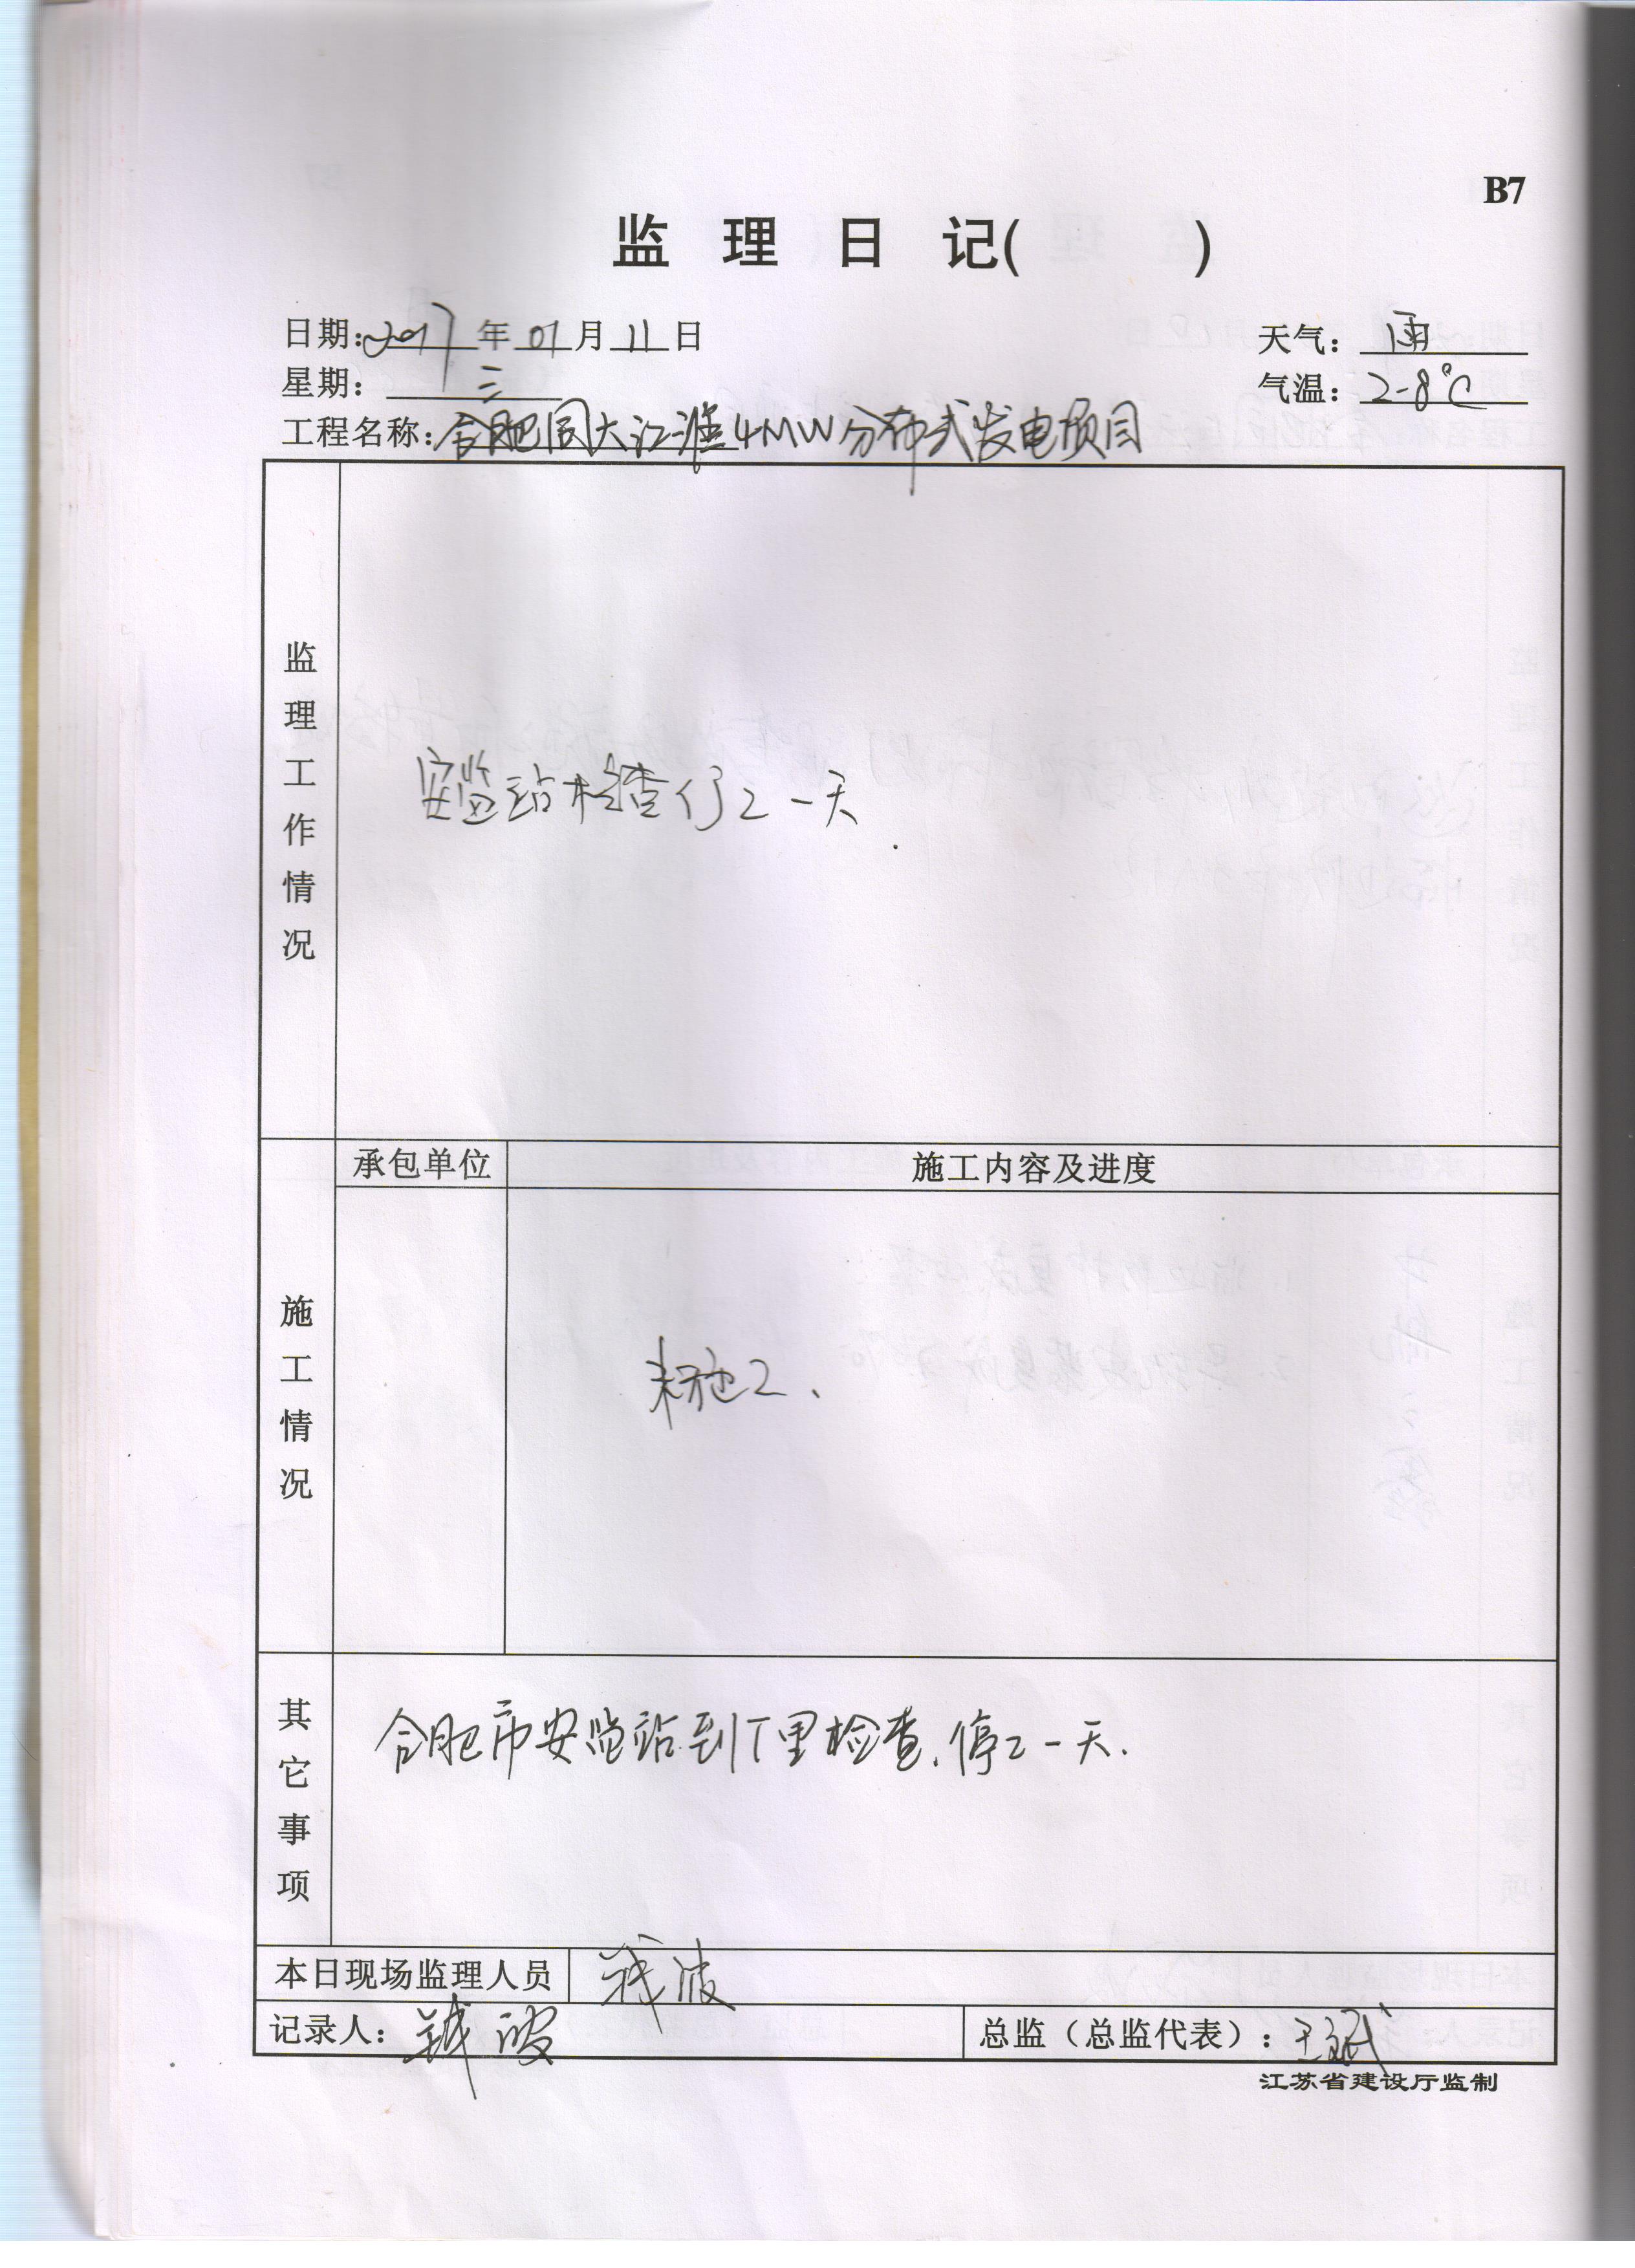 B7
监理日记( )
日期:2017年01月11日
天气：雨
星期：三
气温：2-8℃
工程名称:合肥同大江淮4MW分布式发电项目
监理工作情况
安监站检查停工一天
承包单位
施工内容及进度
施工情况
未施工、
其它事项
合肥市安监站到厂里检查、停工一天.
本日现场监理人员
钱波
记录人：钱波
总监（总监代表）：王斌
江苏省建设厅监制